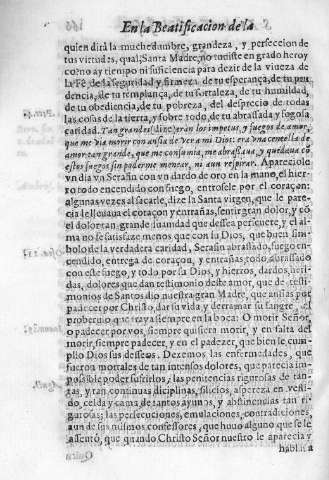 En la Beatificacion de la
quien dirà la muchedumbre, grandeza, y perfeccion de
tus virtudes, qual, Santa Madre, no tuuiste en grado heroy
co? no ay tiempo ni suficiencia para dezir de la viueza de
la Fè, de la seguridad y firmeza de tu esperança, de tu pru
dencia, de tu templança, de tu fortaleza, de tu humildad,
de tu obediencia, de tu pobreza, del desprecio de todas
las cosas de la tierra, y sobre todo, de tu abrasada y fogosa
caridad. Tan grandes (dize) eran los impetus, y fuegos de amor,
que me via morir con ansia de ver a mi Dios: era vna centella de
amor tan grande, que me consumia, me abrasaua, y quedaua cõ
estos fuegos sin poderme menear, ni aun respirar. Apareciole
vn dia vn Serafin con vn dardo de oro en la mano, el hier
ro todo encendido con fuego, entrosele por el coraçon:
algunas vezes al sacarle, dize la Santa virgen, que le pare
cia le lleuaua el coraçon y entrañas, sentir gran dolor, y cõ
el dolor tan grande juamidad que dessea perseuere, y el al
ma no se satisfaze menos que con su Dios, que buen sim
bolo de la verdadera caridad, Serafin abrasado, fuego en-
cendido, entrega de coraçon, y entrañas, todo abrasado
con este fuego, y todo por su Dios, y hierros, dardos, heri
das, dolores que dan testimonio deste amor, que de testi
monios de Santos dio nuestra gran Madre, que ansias por
padecer por Christo, dar la vida y derramar su sangre, el
prouerbio que traya siempre en la boca: O morir Señor,
o padecer por vos, siempre quisiera morir, y en falta del
morir, siempre padecer, y en el padezer, que bien le cum-
plio Dios sus desseos. Dexemos las enfermedades, que
fueron mortales de tan intensos dolores, que parecia im
posible poder sufrirlos, las penitencias rigurosas de tan-
tas, y tan continuas diciplinas, silicios, aspereza en vesti-
do, celda y cama de tantos ayunos, y abstinencias tan ri-
gurosas; las persecuciones, emulaciones, contradiciones,
aun de sus mismos confessores, que huuo alguno que se le
assentò, que quando Christo Señor nuestro le aparecia y
hablaua